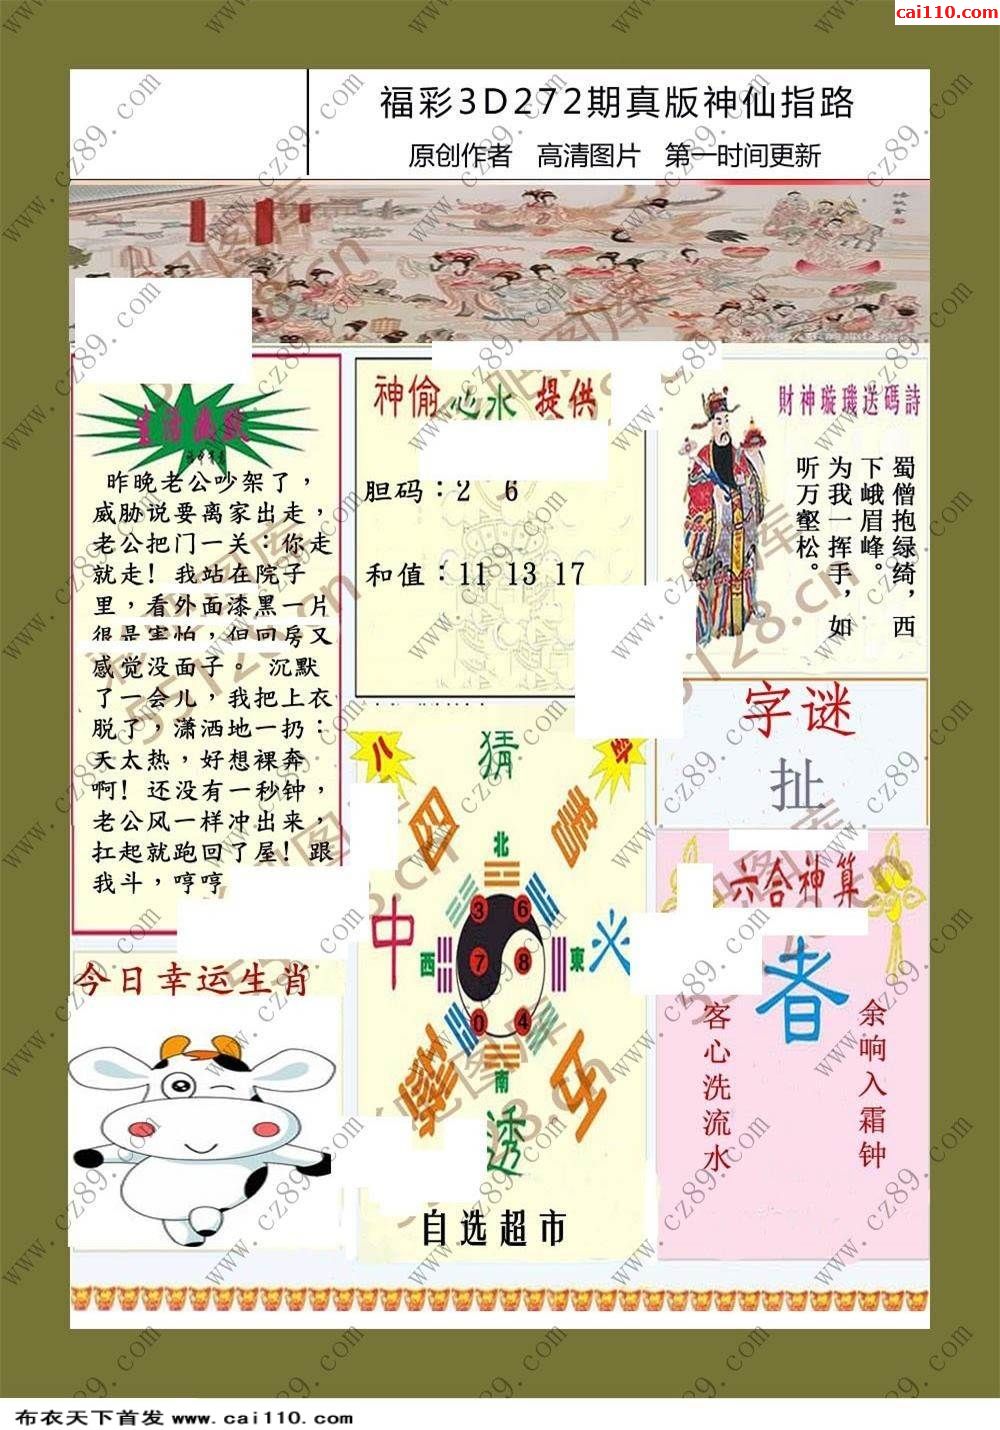 cai110.com
福彩3D272期真版神仙指路
原创作者 高清图片 第一时间更新
昨晚老公吵架了，
威胁说要离家出走，
老公把门一关：你走
就走！我站在院子
里，看外面漆黑一片
很是害怕，但回房又
感觉没面子。沉默
了一会儿，我把上衣
脱了，潇洒地一扔：
天太热，好想裸奔
啊！还没有一秒钟，
老公风一样冲出来，
扛起就跑回了屋！跟
我斗，哼哼
神偷心水提供
胆码：2 6
和值：11 13 17
財神璇璣送碼詩
蜀僧抱绿绮，西
下峨眉峰。
为我一挥手，如
听万壑松。
字谜
扯
八
猜
北
中
西
東
南
3 6
7 8
0 4
透
自选超市
六合神算
者
客心洗流水
余响入霜钟
今日幸运生肖
布衣天下首发 www.cai110.com
www.cz89.com
55128.cn